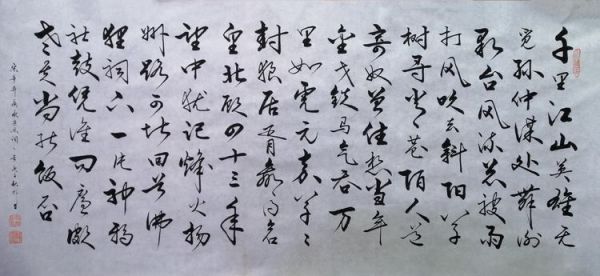 千里江山英雄无
觅孙仲谋处舞榭
歌台风流总被雨
打风吹去斜阳草
树寻常巷陌人道
寄奴曾住想当年
金戈铁马气吞万
里如虎元嘉草草
封狼居胥赢得仓
皇北顾四十三年
望中犹记烽火扬
州路可堪回首佛
狸祠下一片神鸦
社鼓凭谁问廉颇
老矣尚能饭否
宋辛弃疾永遇乐词